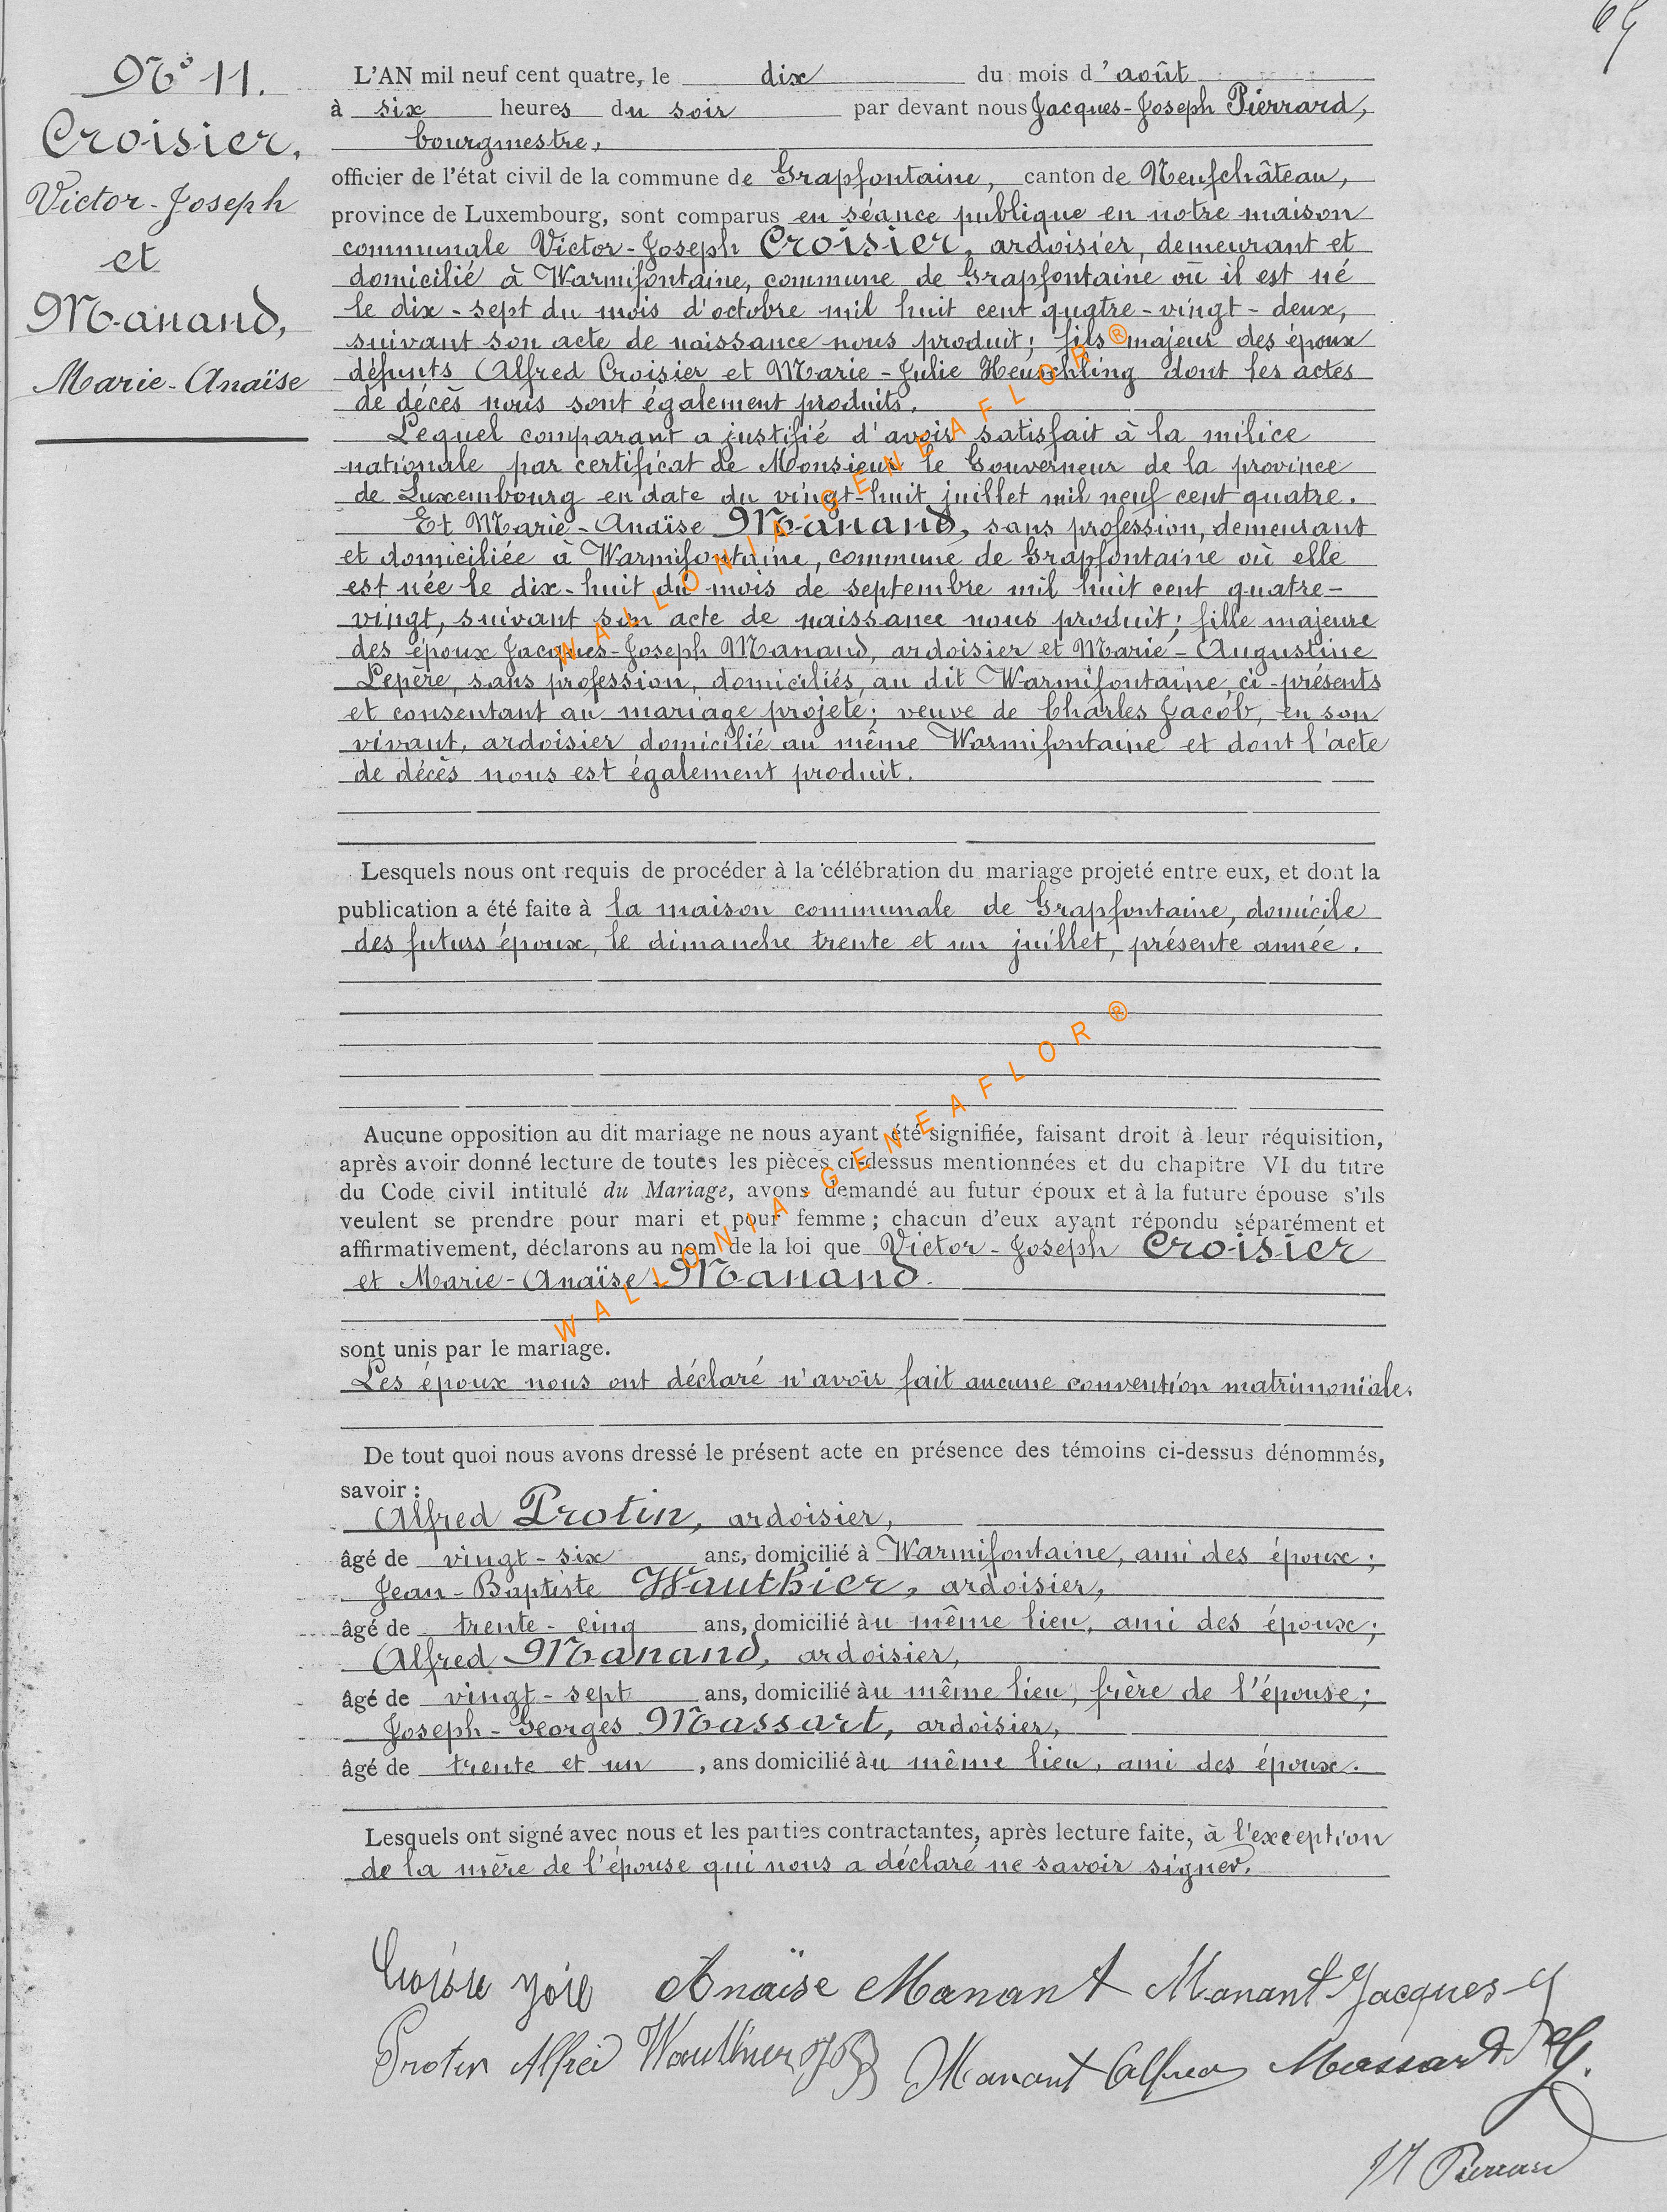 65
N° 11.
Croisier,
Victor-Joseph
et
Manand,
Marie-Anaïse
L'AN mil neuf cent quatre, le dix du mois d'août
à six heures du soir par devant nous Jacques-Joseph Pierrard,
bourgmestre,
officier de l'état civil de la commune de Grapfontaine, canton de Neufchâteau,
province de Luxembourg, sont comparus en séance publique en notre maison
communale Victor-Joseph Croisier, ardoisier, demeurant et
domicilié à Warmifontaine, commune de Grapfontaine où il est né
le dix-sept du mois d'octobre mil huit cent quatre-vingt-deux,
suivant son acte de naissance nous produit; fils majeur des époux
défunts Alfred Croisier et Marie-Julie Heuschling dont les actes
de décès nous sont également produits.
Lequel comparant a justifié d'avoir satisfait à la milice
nationale par certificat de Monsieur le Gouverneur de la province
de Luxembourg en date du vingt-huit juillet mil neuf cent quatre.
Et Marie-Anaïse Manand, sans profession, demeurant
et domiciliée à Warmifontaine, commune de Grapfontaine où elle
est née le dix-huit du mois de septembre mil huit cent quatre-
vingt, suivant son acte de naissance nous produit; fille majeure
des époux Jacques-Joseph Manand, ardoisier et Marie-Augustine
Lepère, sans profession, domiciliés, au dit Warmifontaine, ci-présents
et consentant au mariage projeté; veuve de Charles Jacob, en son
vivant, ardoisier domicilié au même Warmifontaine et dont l'acte
de décès nous est également produit.
Lesquels nous ont requis de procéder à la célébration du mariage projeté entre eux, et dont la
publication a été faite à la maison communale de Grapfontaine, domicile
des futurs époux, le dimanche trente et un juillet, présente année.
Aucune opposition au dit mariage ne nous ayant été signifiée, faisant droit à leur réquisition,
après avoir donné lecture de toutes les pièces ci-dessus mentionnées et du chapitre VI du titre
du Code civil intitulé du Mariage, avons demandé au futur époux et à la future épouse s'ils
veulent se prendre pour mari et pour femme ; chacun d'eux ayant répondu séparément et
affirmativement, déclarons au nom de la loi que Victor-Joseph Croisier
et Marie-Anaïse Manand.
sont unis par le mariage.
Les époux nous ont déclaré n'avoir fait aucune convention matrimoniale.
De tout quoi nous avons dressé le présent acte en présence des témoins ci-dessus dénommés,
savoir :
Alfred Protin, ardoisier,
âgé de vingt-six ans, domicilié à Warmifontaine, ami des époux;
Jean-Baptiste Wauthier, ardoisier,
âgé de trente-cinq ans, domicilié au même lieu, ami des époux;
Alfred Manand, ardoisier,
âgé de vingt-sept ans, domicilié au même lieu, frère de l'épouse;
Joseph-Georges Massart, ardoisier,
âgé de trente et un , ans domicilié au même lieu, ami des époux.
Lesquels ont signé avec nous et les parties contractantes, après lecture faite, à l'exception
de la mère de l'épouse qui nous a déclaré ne savoir signer.
Anaïse Manant Manant Jacques
Protin Alfred Wauthier Manant Alfred Massart
Pierrard
WALLONIA-GENEAFLOR®
WALLONIA-GENEAFLOR®